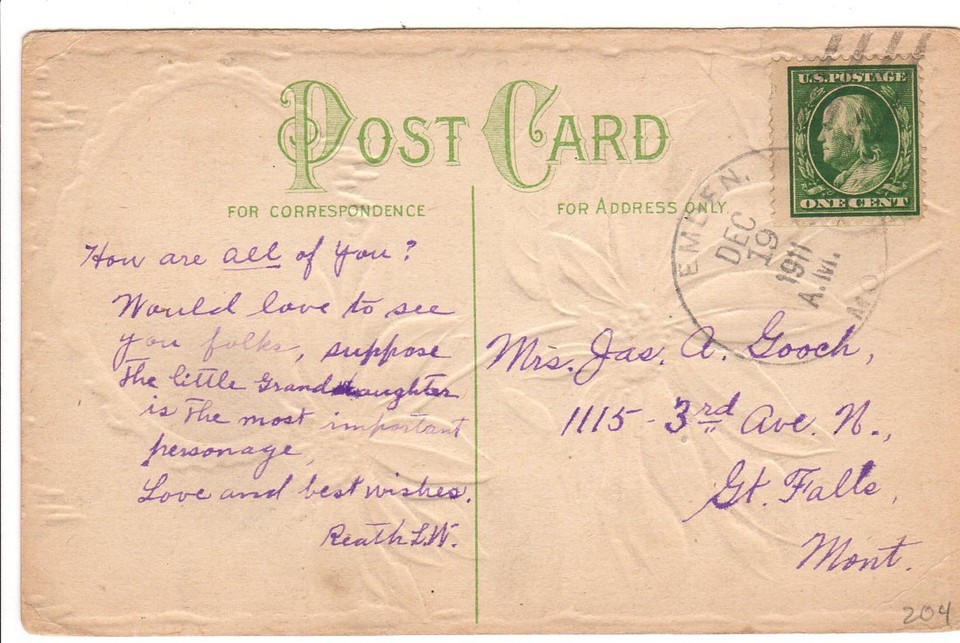 POST CARD
FOR CORRESPONDENCE
FOR ADDRESS ONLY
U.S. POSTAGE
ONE CENT
EMDEN, MO
DEC
19
1911
A.M.
How are all of you?
Would love to see
you folks, suppose
the little Granddaughter
is the most important
personage,
Love and best wishes.
Reath L.W.
Mrs. Jas. A. Gooch,
1115 - 3rd Ave. N.,
Gt. Falls,
Mont.
204